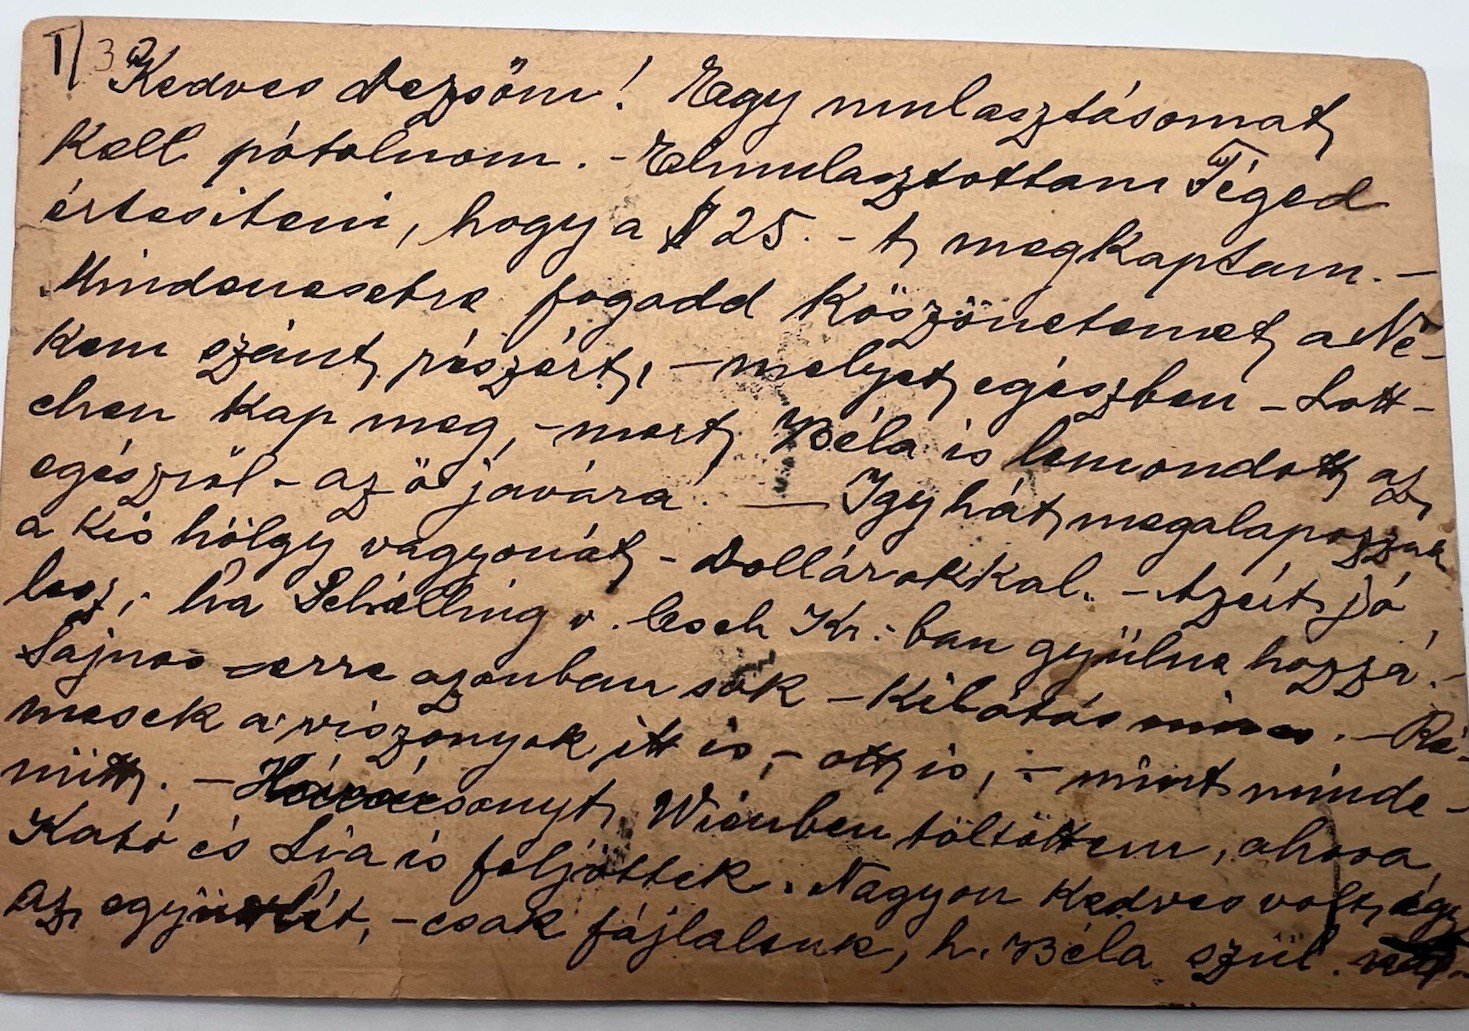 I/32
Kedves Dezsőm! Egy mulasztásomat
kell pótolnom. - Elmulasztottam Téged
értesiteni, hogy a $ 25. - t megkaptam. -
Mindenesetre fogadd köszönetemet a Né-
kem szánt részért, - melyet egészben - Lott-
chen kap meg, - mert Béla is lemondott az
egészről - az ő javára. — Igy hát megalapozzuk
a kis hölgy vagyonát - Dollárokkal. - Azért jó
lesz, ha Schilling v. Csch Kr.-ban gyülne hozzá. -
Sajnos erre azonban sok - kilátás nincs. - Ré-
mesek a viszonyok itt is, - ott is, - mint minde-
nütt. - Karácsonyt Wienben töltöttem, ahova
Kató és Lia is feljöttek. Nagyon kedves volt igy
az együttlét, - csak fájlaluk, h. Béla szül.